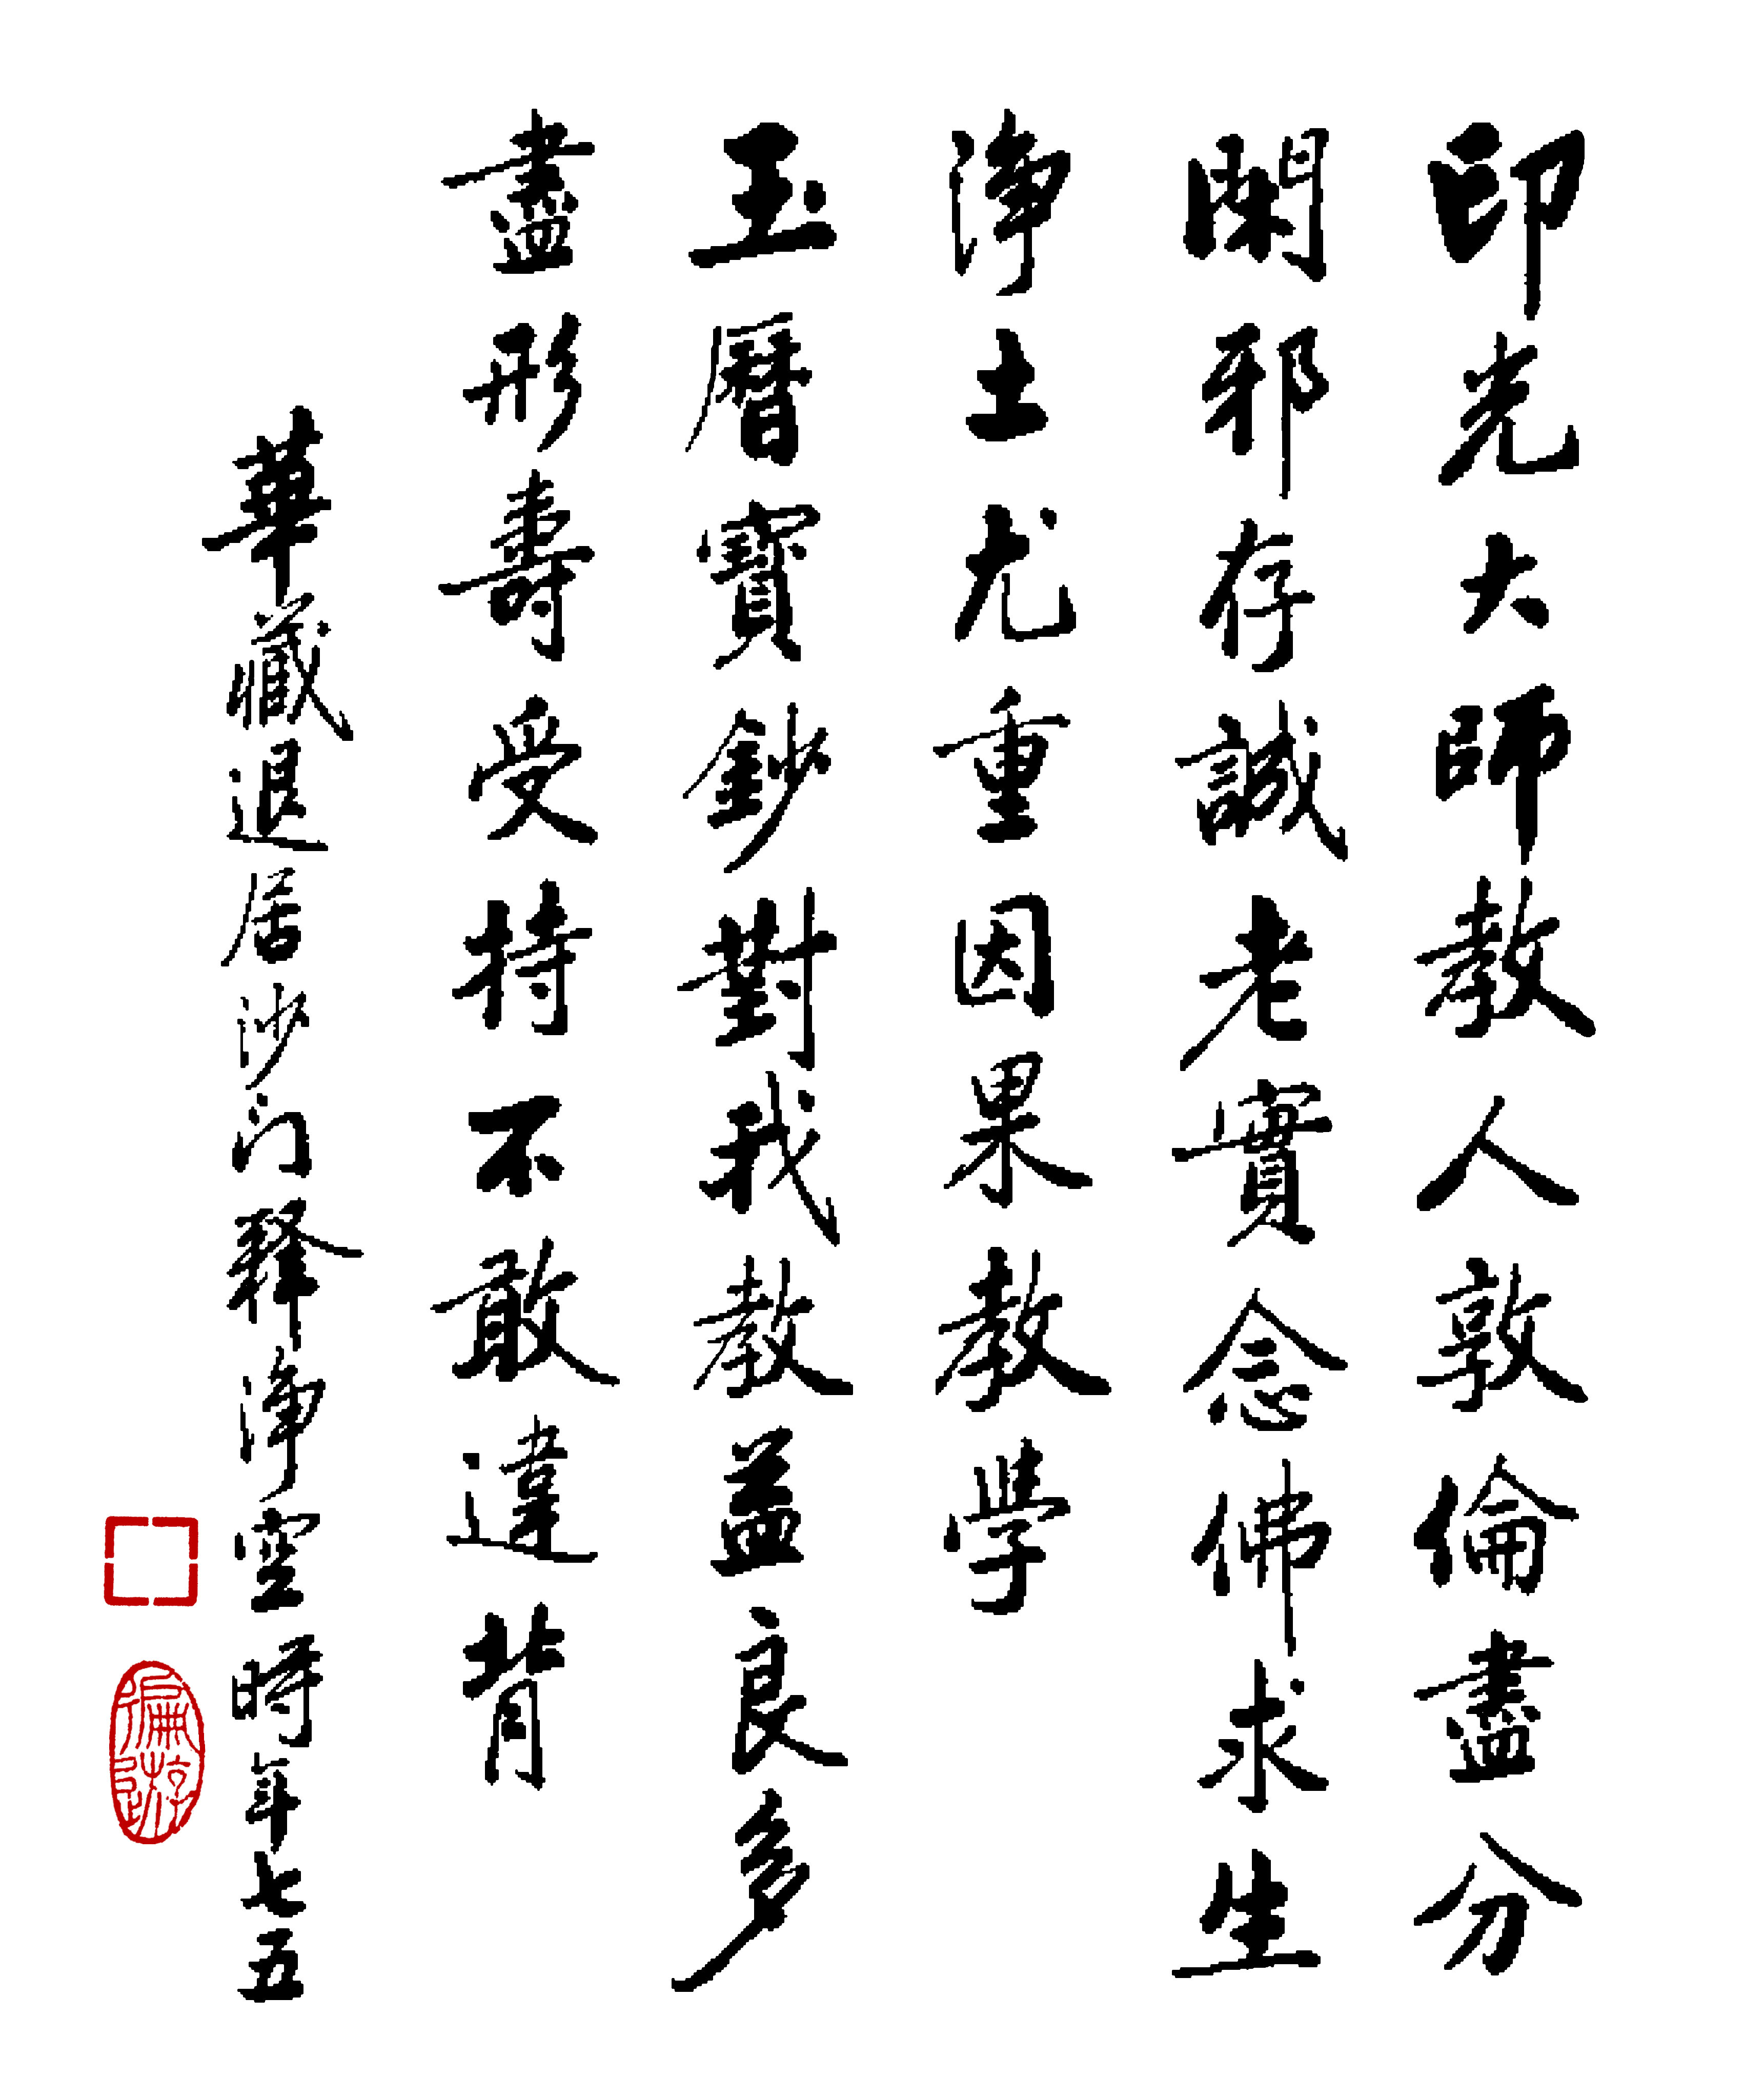 印光大師教人敦倫盡分
閑邪存誠老實念佛求生
淨土尤重因果教學
玉曆寶鈔對我教益良多
盡形壽受持不敢違背
華藏退居沙门釋淨空時年七五